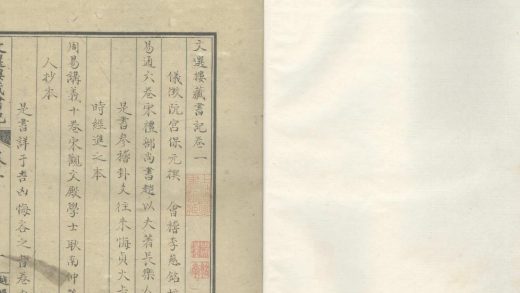 文選樓藏書記卷一
儀徵阮宮保元撰 會稽李慈銘
易通六卷宋禮部尚書趙以夫著長樂人
是書參稽卦爻往來悔貞大
時經進之本
周易講義十卷宋觀文殿學士耿南仲著
人抄本
是書詳于吉凶悔吝之
文選樓藏書記